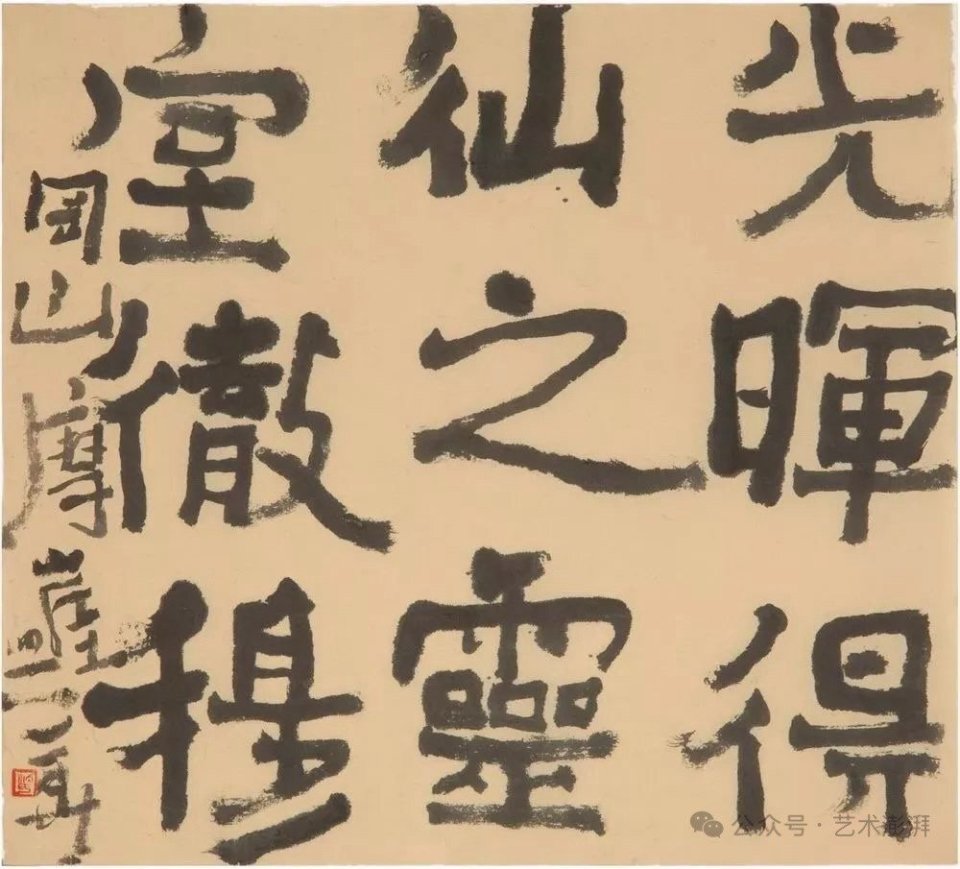 光暉得
仙之靈
室徹穆
岡山摩崖
公众号·艺术澎湃